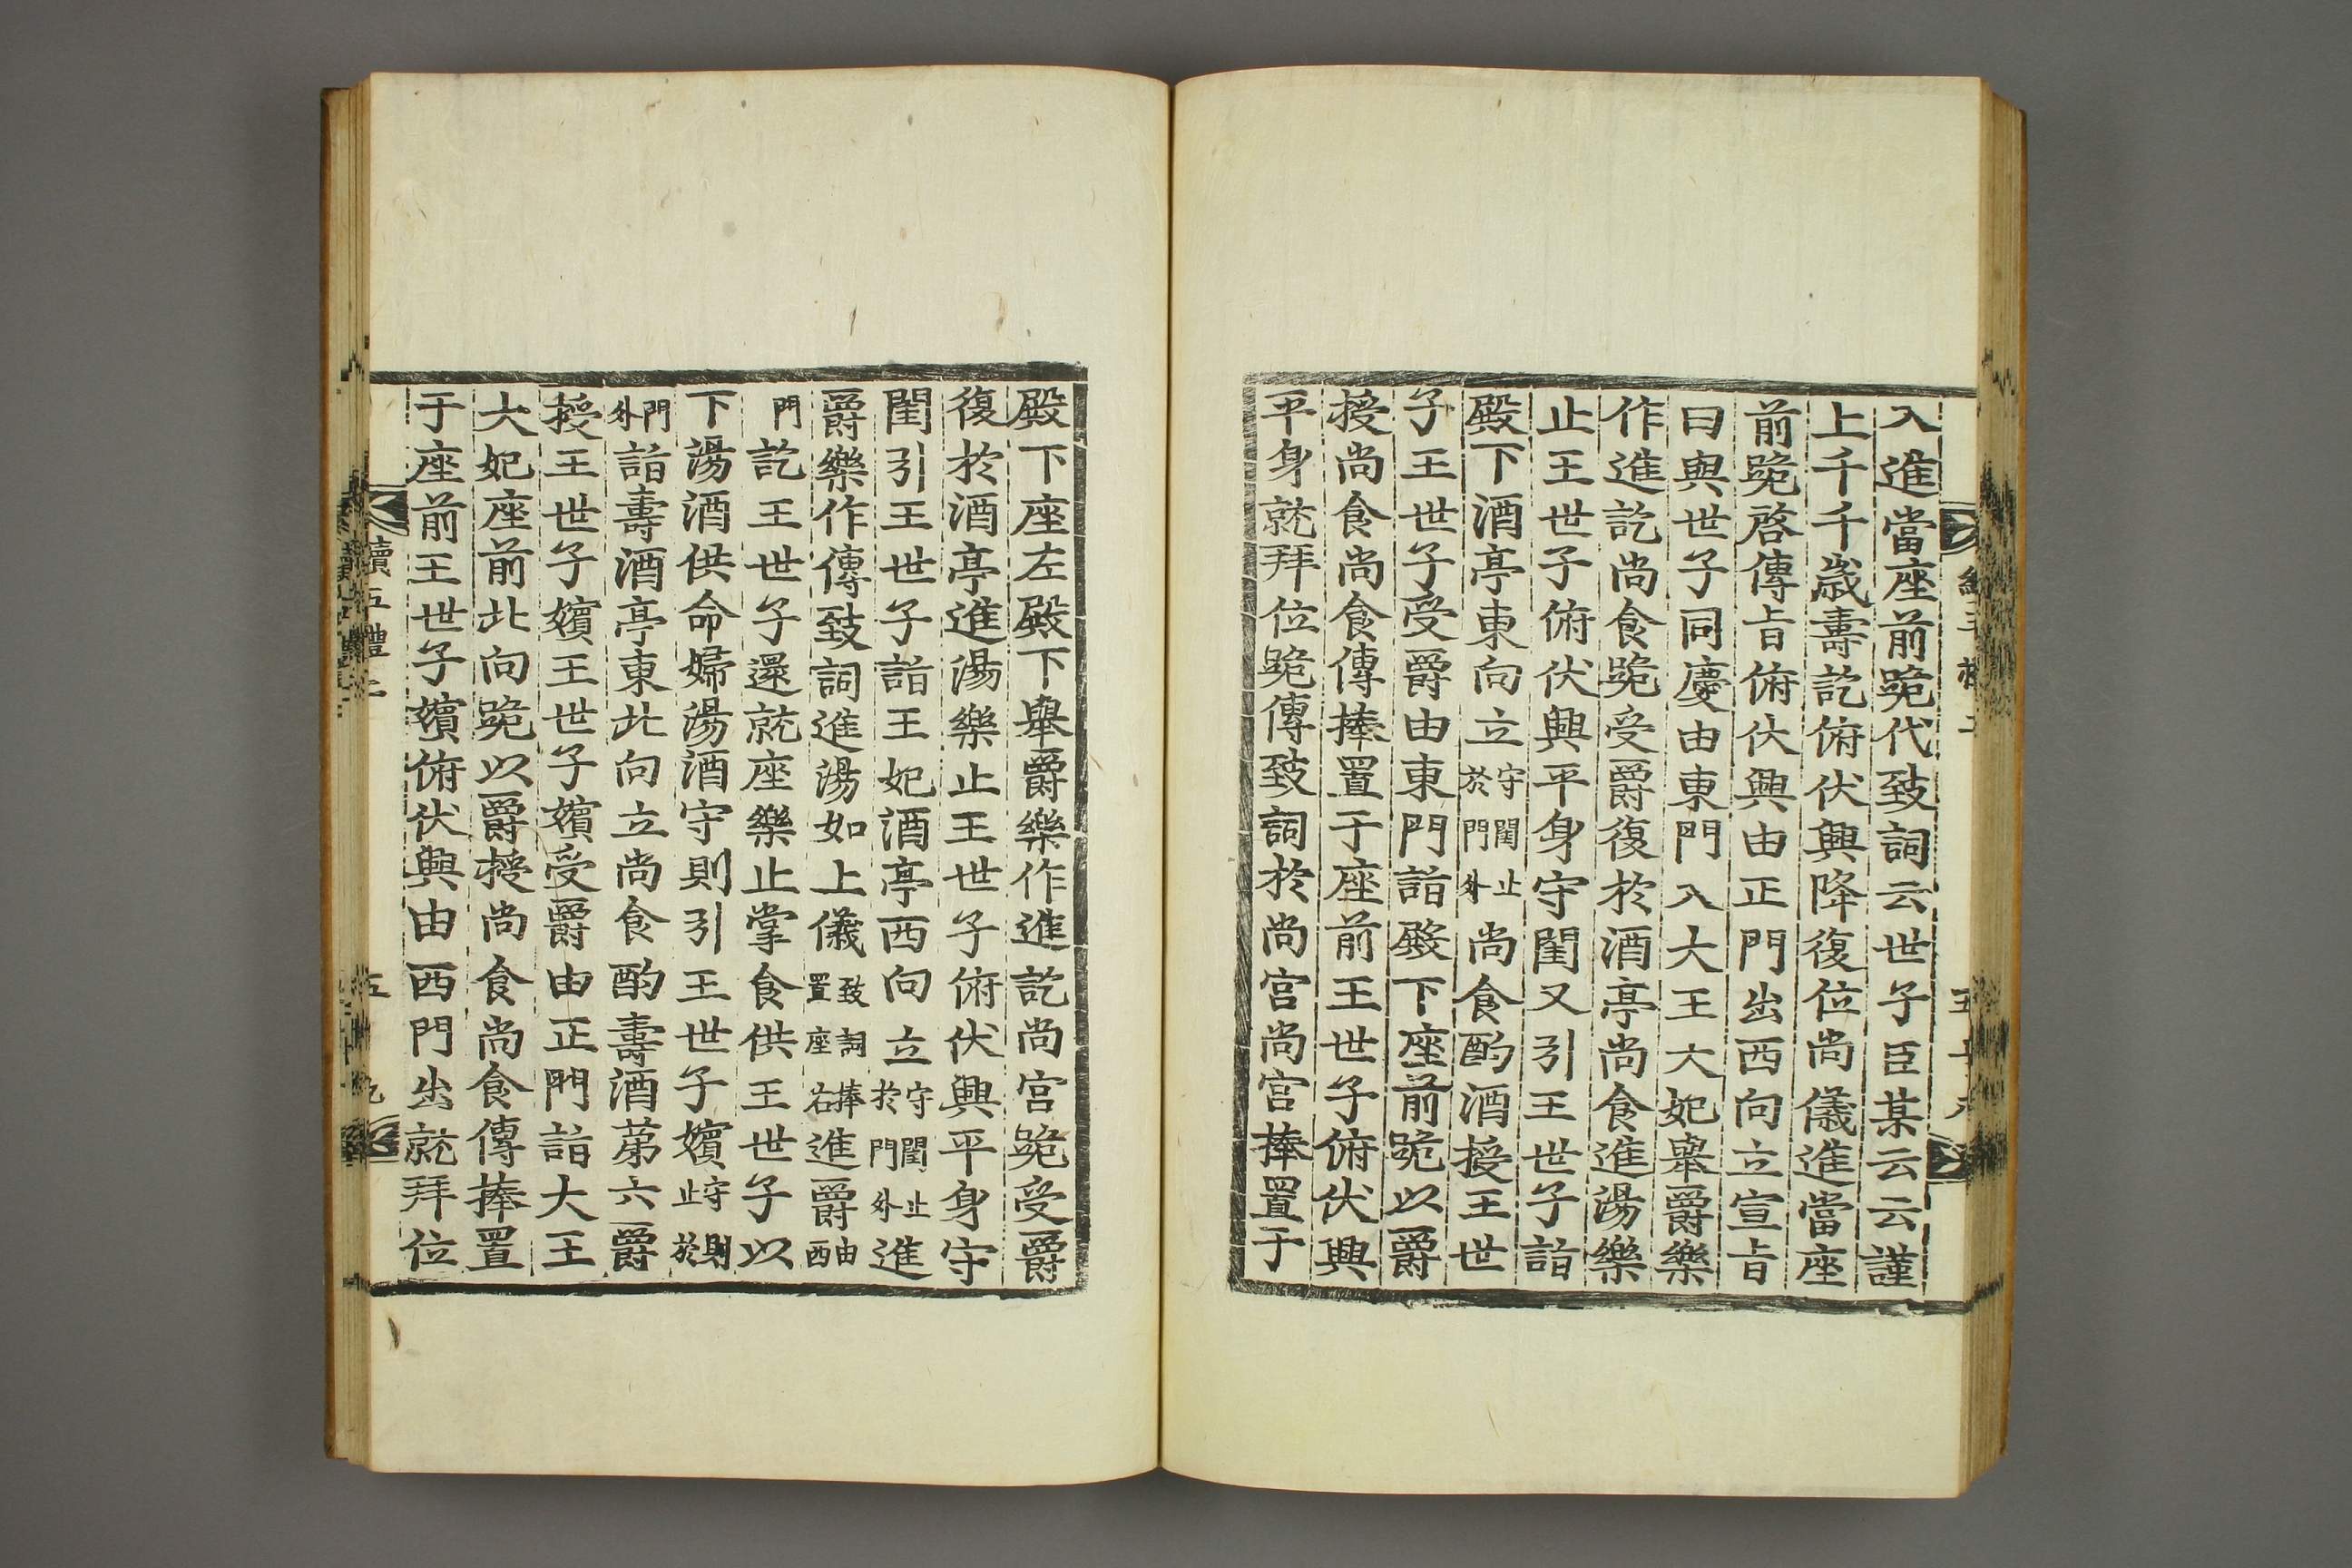 入進當座前跪代致詞云世子臣某云云謹
上千千歲壽訖俯伏興降復位尚儀進當座
前跪啓傳旨俯伏興由正門出西向立宣旨
曰與世子同慶由東門入大王大妃擧爵樂
作進訖尚食跪受爵復於酒亭尚食進湯樂
止王世子俯伏興平身守閨又引王世子詣
殿下酒亭東向立守閨止於門外尚食酌酒授王世
子王世子受爵由東門詣殿下座前跪以爵
授尚食尚食傳捧置于座前王世子俯伏興
平身就拜位跪傳致詞於尚宮尚宮捧置于
殿下座左殿下擧爵樂作進訖尚宮跪受爵
復於酒亭進湯樂止王世子俯伏興平身守
閨引王世子詣王妃酒亭西向立守閨止於門外進
爵樂作傳致詞進湯如上儀致詞捧置座右進爵由西
門訖王世子還就座樂止掌食供王世子以
下湯酒供命婦湯酒守則引王世子嬪守則止於
門外詣壽酒亭東北向立尚食酌壽酒第六爵
授王世子嬪王世子嬪受爵由正門詣大王
大妃座前北向跪以爵授尚食尚食傳捧置
于座前王世子嬪俯伏興由西門出就拜位
續五禮二